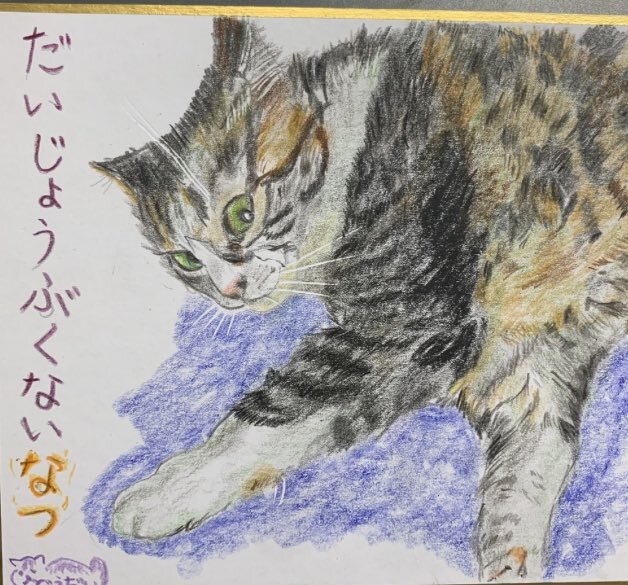 だいじょうぶくない なつ